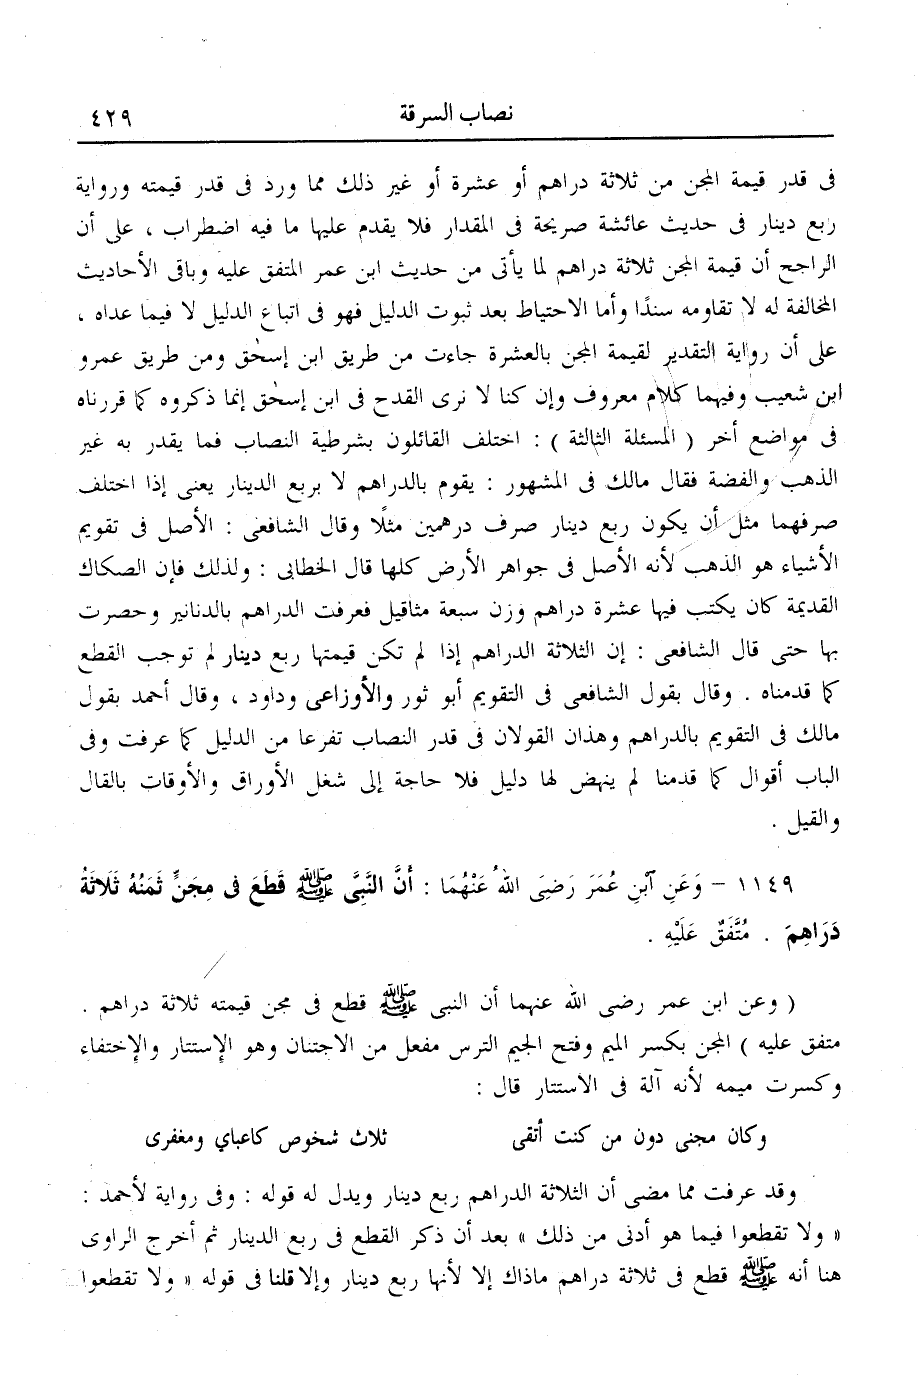 نصاب السرقة ٤٢٩
فى قدر قيمة المجن من ثلاثة دراهم أو عشرة أو غير ذلك مما ورد فى قدر قيمته ورواية
ربع دينار فى حديث عائشة صريحة فى المقدار فلا يقدم عليها ما فيه اضطراب ، على أن
الراجح أن قيمة المجن ثلاثة دراهم لما يأتى من حديث ابن عمر المتفق عليه وباقى الأحاديث
المخالفة له لا تقاومه سندًا وأما الاحتياط بعد ثبوت الدليل فهو فى اتباع الدليل لا فيما عداه ،
على أن رواية التقدير لقيمة المجن بالعشرة جاءت من طريق ابن إسحٰق ومن طريق عمرو
ابن شعيب وفيهما كلام معروف وإن كنا لا نرى القدح فى ابن إسحٰق إنما ذكروه كما قررناه
فى مواضع أخر ( المسئلة الثالثة ) : اختلف القائلون بشرطية النصاب فما يقدر به غير
الذهب والفضة فقال مالك فى المشهور : يقوم بالدراهم لا بربع الدينار يعنى إذا اختلف
صرفهما مثل أن يكون ربع دينار صرف درهمين مثلًا وقال الشافعى : الأصل فى تقويم
الأشياء هو الذهب لأنه الأصل فى جواهر الأرض كلها قال الخطابى : ولذلك فإن الصكاك
القديمة كان يكتب فيها عشرة دراهم وزن سبعة مثاقيل فعرفت الدراهم بالدنانير وحصرت
بها حتى قال الشافعى : إن الثلاثة الدراهم إذا لم تكن قيمتها ربع دينار لم توجب القطع
كما قدمناه . وقال بقول الشافعى فى التقويم أبو ثور والأوزاعى وداود ، وقال أحمد بقول
مالك فى التقويم بالدراهم وهذان القولان فى قدر النصاب تفرعا من الدليل كما عرفت وفى
الباب أقوال كما قدمنا لم ينهض لها دليل فلا حاجة إلى شغل الأوراق والأوقات بالقال
والقيل .
١١٤٩ – وَعَنِ ٱبْنِ عُمَرَ رَضِىَ اللهُ عَنْهُمَا : أَنَّ النَّبِىَّ ﷺ قَطَعَ فى مِجَنٍّ ثَمَنُهُ ثَلَاثَةُ
دَرَاهِمَ . مُتَّفَقٌ عَلَيْهِ .
( وعن ابن عمر رضى الله عنهما أن النبى ﷺ قطع فى مجن قيمته ثلاثة دراهم .
متفق عليه ) المجن بكسر الميم وفتح الجيم الترس مفعل من الاجتنان وهو الإستتار والإختفاء
وكسرت ميمه لأنه آلة فى الاستتار قال :
وكان مجنى دون من كنت أتقى ثلاث شخوص كاعباي ومغفرى
وقد عرفت مما مضى أن الثلاثة الدراهم ربع دينار ويدل له قوله : وفى رواية لأحمد :
« ولا تقطعوا فيما هو أدنى من ذلك » بعد أن ذكر القطع فى ربع الدينار ثم أخرج الراوى
هنا أنه ﷺ قطع فى ثلاثة دراهم ماذاك إلا لأنها ربع دينار وإلا قلنا فى قوله « ولا تقطعوا